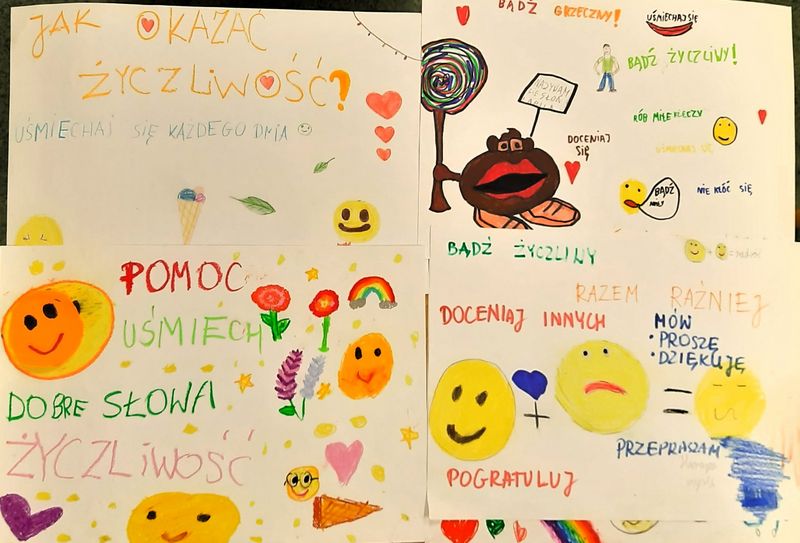 JAK OKAZAĆ
ŻYCZLIWOŚĆ?
UŚMIECHAJ SIĘ KAŻDEGO DNIA
BĄDŹ GRZECZNY!
UŚMIECHAJ SIĘ
BĄDŹ ŻYCZLIWY!
NAZYWAM
DOCENIAJ
SIĘ
RÓB MIŁE RZECZY
UŚMIECHAJ SIĘ
BĄDŹ
MIŁY
NIE KŁÓĆ SIĘ
POMOC
UŚMIECH
DOBRE SŁOWA
ŻYCZLIWOŚĆ
BĄDŹ ŻYCZLIWY
RAZEM RAŹNIEJ
DOCENIAJ INNYCH
MÓW
• PROSZĘ
• DZIĘKUJĘ
+ =
PRZEPRASZAM
POGRATULUJ